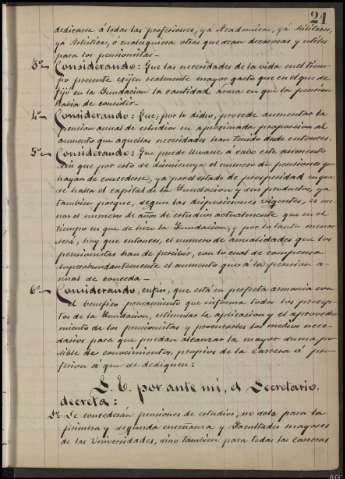 21
dedicarse á todas las profesiones, yá Académicas, yá Militares,
yá Artísticas, ó cualesquiera otras que sean decorosas y utiles
para los pensionistas.
3º Considerando: Que las necesidades de la vida en el tiem-
po presente exijen realmente mayor gasto que en el que se
fijó en la Fundacion la cantidad anua en que la pension
habia de consistir.
4º Considerando: Que, por lo dicho, procede aumentar la
pension anual de estudios en aproximada proporcion al
aumento que aquellas necesidades han tenido desde entonces.
5º Considerando: Que puede llevarse á cabo este aumento
sin que por esto se disminuya el número de pensiones que
hayan de concederse, ya por el estado de prosperidad en que
se halla el capital de la Fundacion y sus productos, ya
tambien porque, segun las disposiciones vigentes, es me-
nor el número de años de estudios actualmente que en el
tiempo en que se hizo la Fundacion, y por lo tanto menor
será, hoy que entonces, el número de anualidades que los
pensionistas han de percibir, con lo cual se compensa
superabundantemente el aumento que á la pension a-
nual se conceda.
6º Considerando, en fin, que está en perfecta armonia con
el benéfico pensamiento que informa todos los precep-
tos de la Fundacion, estimular la aplicacion y el aprovecha-
miento de los pensionistas y proveerles los medios nece-
sarios para que puedan alcanzar la mayor suma po-
sible de conocimientos, propios de la carrera ó pro-
fesion á que se dediquen:
S. E. por ante mí, el Secretario,
decreta:
1º Se concederán pensiones de estudios, no solo para la
primera y segunda enseñanza y Facultades mayores
de las Universidades, sino tambien para todas las carreras